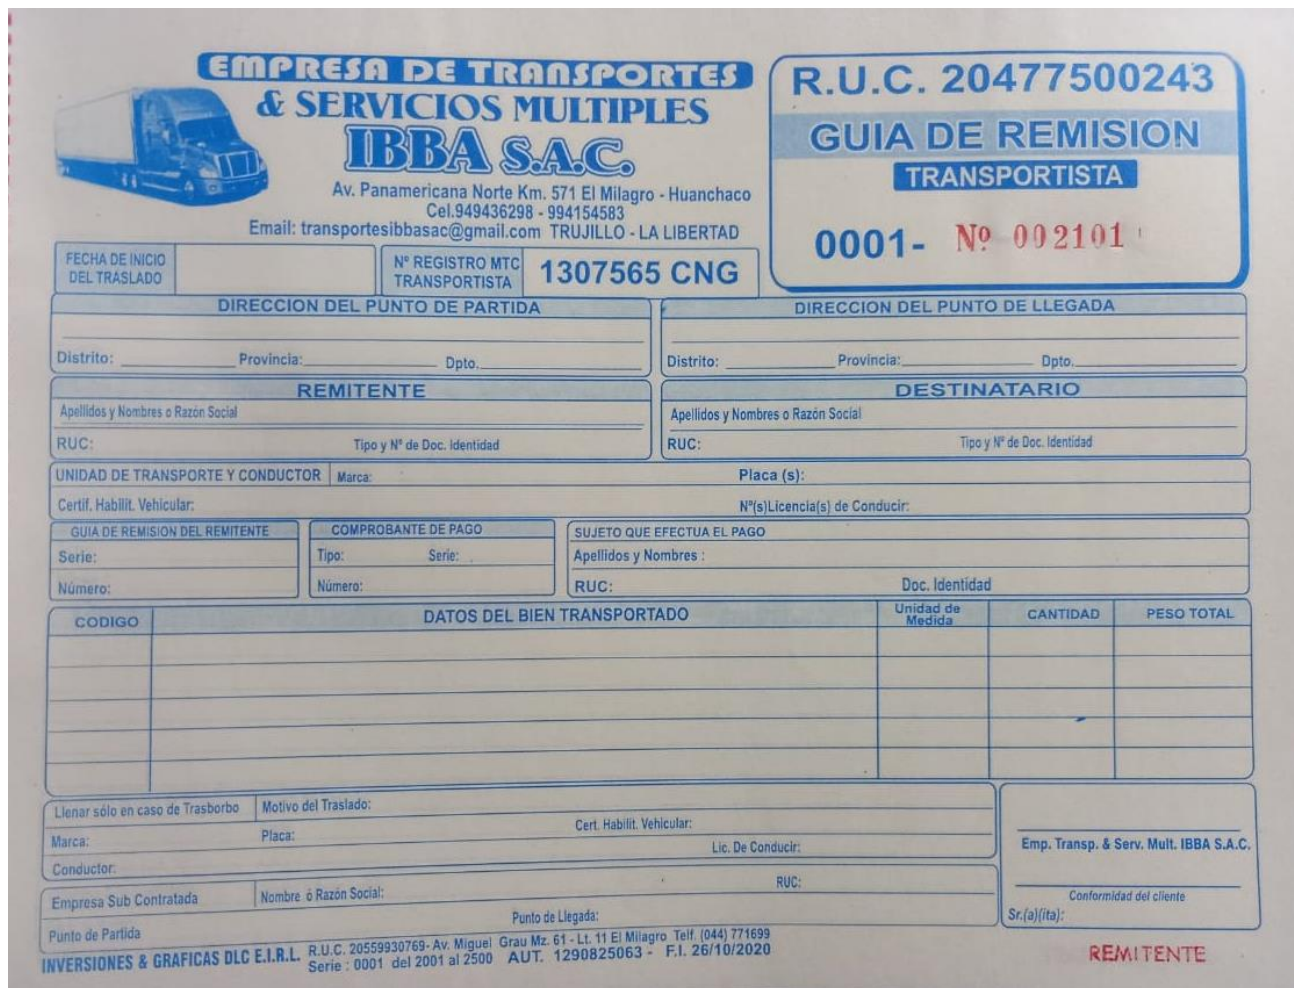 EMPRESA DE TRANSPORTES
& SERVICIOS MULTIPLES
IBBA S.A.C.
Av. Panamericana Norte Km. 571 El Milagro - Huanchaco
Cel.949436298 - 994154583
Email: transportesibbasac@gmail.com TRUJILLO - LA LIBERTAD
R.U.C. 20477500243
GUIA DE REMISION
TRANSPORTISTA
0001- Nº 002101
FECHA DE INICIO DEL TRASLADO
Nº REGISTRO MTC TRANSPORTISTA 1307565 CNG
DIRECCION DEL PUNTO DE PARTIDA
Distrito: Provincia: Dpto.
DIRECCION DEL PUNTO DE LLEGADA
Distrito: Provincia: Dpto.
REMITENTE
Apellidos y Nombres o Razón Social
RUC: Tipo y Nº de Doc. Identidad
DESTINATARIO
Apellidos y Nombres o Razón Social
RUC: Tipo y Nº de Doc. Identidad
UNIDAD DE TRANSPORTE Y CONDUCTOR Marca: Placa (s):
Certif. Habilit. Vehicular: Nº(s)Licencia(s) de Conducir:
GUIA DE REMISION DEL REMITENTE
Serie:
Número:
COMPROBANTE DE PAGO
Tipo: Serie:
Número:
SUJETO QUE EFECTUA EL PAGO
Apellidos y Nombres :
RUC: Doc. Identidad
CODIGO DATOS DEL BIEN TRANSPORTADO Unidad de Medida CANTIDAD PESO TOTAL
Llenar sólo en caso de Trasborbo Motivo del Traslado:
Marca: Placa: Cert. Habilit. Vehicular:
Conductor: Lic. De Conducir:
Empresa Sub Contratada Nombre ó Razón Social: RUC:
Punto de Partida Punto de Llegada:
Emp. Transp. & Serv. Mult. IBBA S.A.C.
Conformidad del cliente
Sr.(a)(ita):
INVERSIONES & GRAFICAS DLC E.I.R.L. R.U.C. 20559930769- Av. Miguel Grau Mz. 61 - Lt. 11 El Milagro Telf. (044) 771699
Serie : 0001 del 2001 al 2500 AUT. 1290825063 - F.I. 26/10/2020
REMITENTE